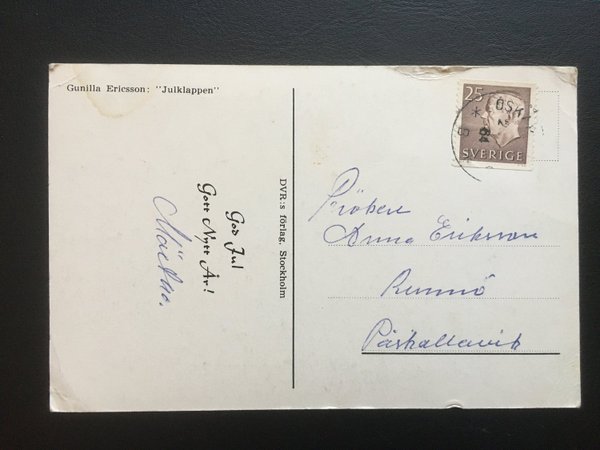 Gunilla Ericsson: "Julklappen"
God Jul
Gott Nytt År!
DVR:s förlag, Stockholm
25
SVERIGE
64
Anna Eriksson
Runnö
Påskallavik